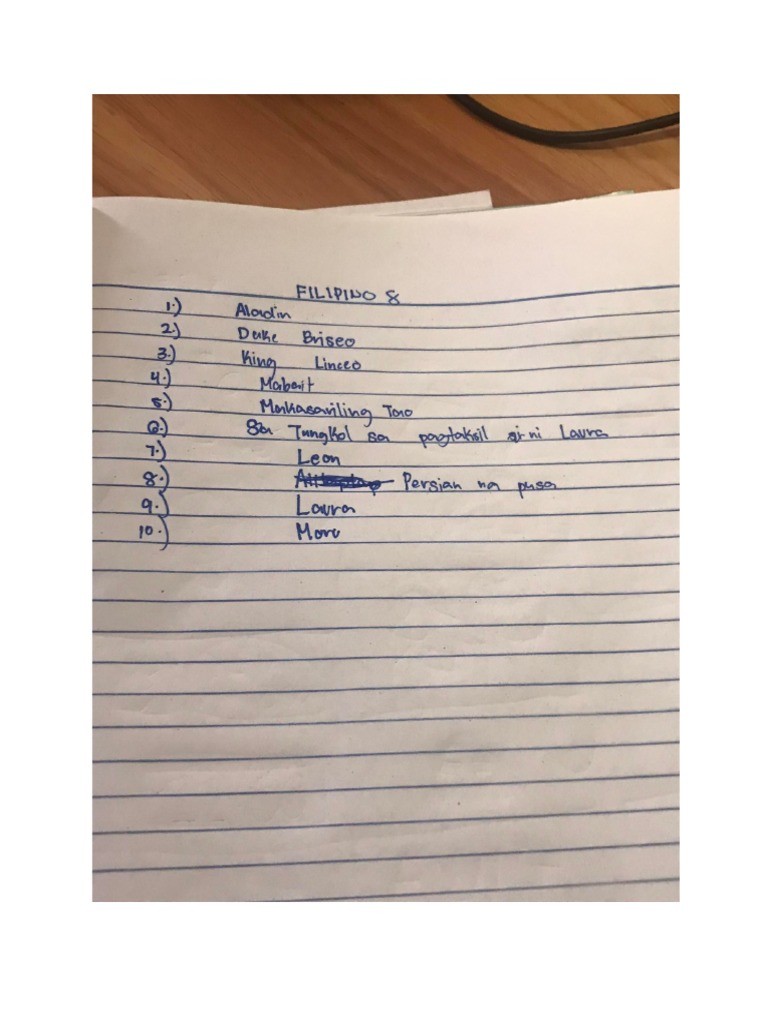 FILIPINO 8
1.) Aladin
2.) Duke Briseo
3.) King Linceo
4.) Mabait
5.) Makasariling Tao
6.) Tungkol sa pagtaksil ni Laura
7.) Leon
8.) Persian na pusa
9.) Laura
10.) Moro